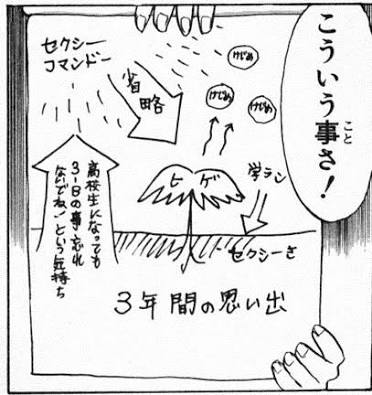 こういう事さ！
こと
セクシー
コマンドー
省略
けじめ
けじめ
けじめ
ヒゲ
学ラン
セクシーさ
高校生になっても
3-Bの事、忘れ
ないでね！という気持ち
3年間の思い出